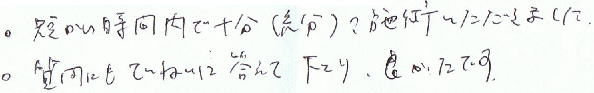 。短かい時間内で十分（気分）に施術いただきました。
。質問にもていねいに答えて下さり、良かったです。